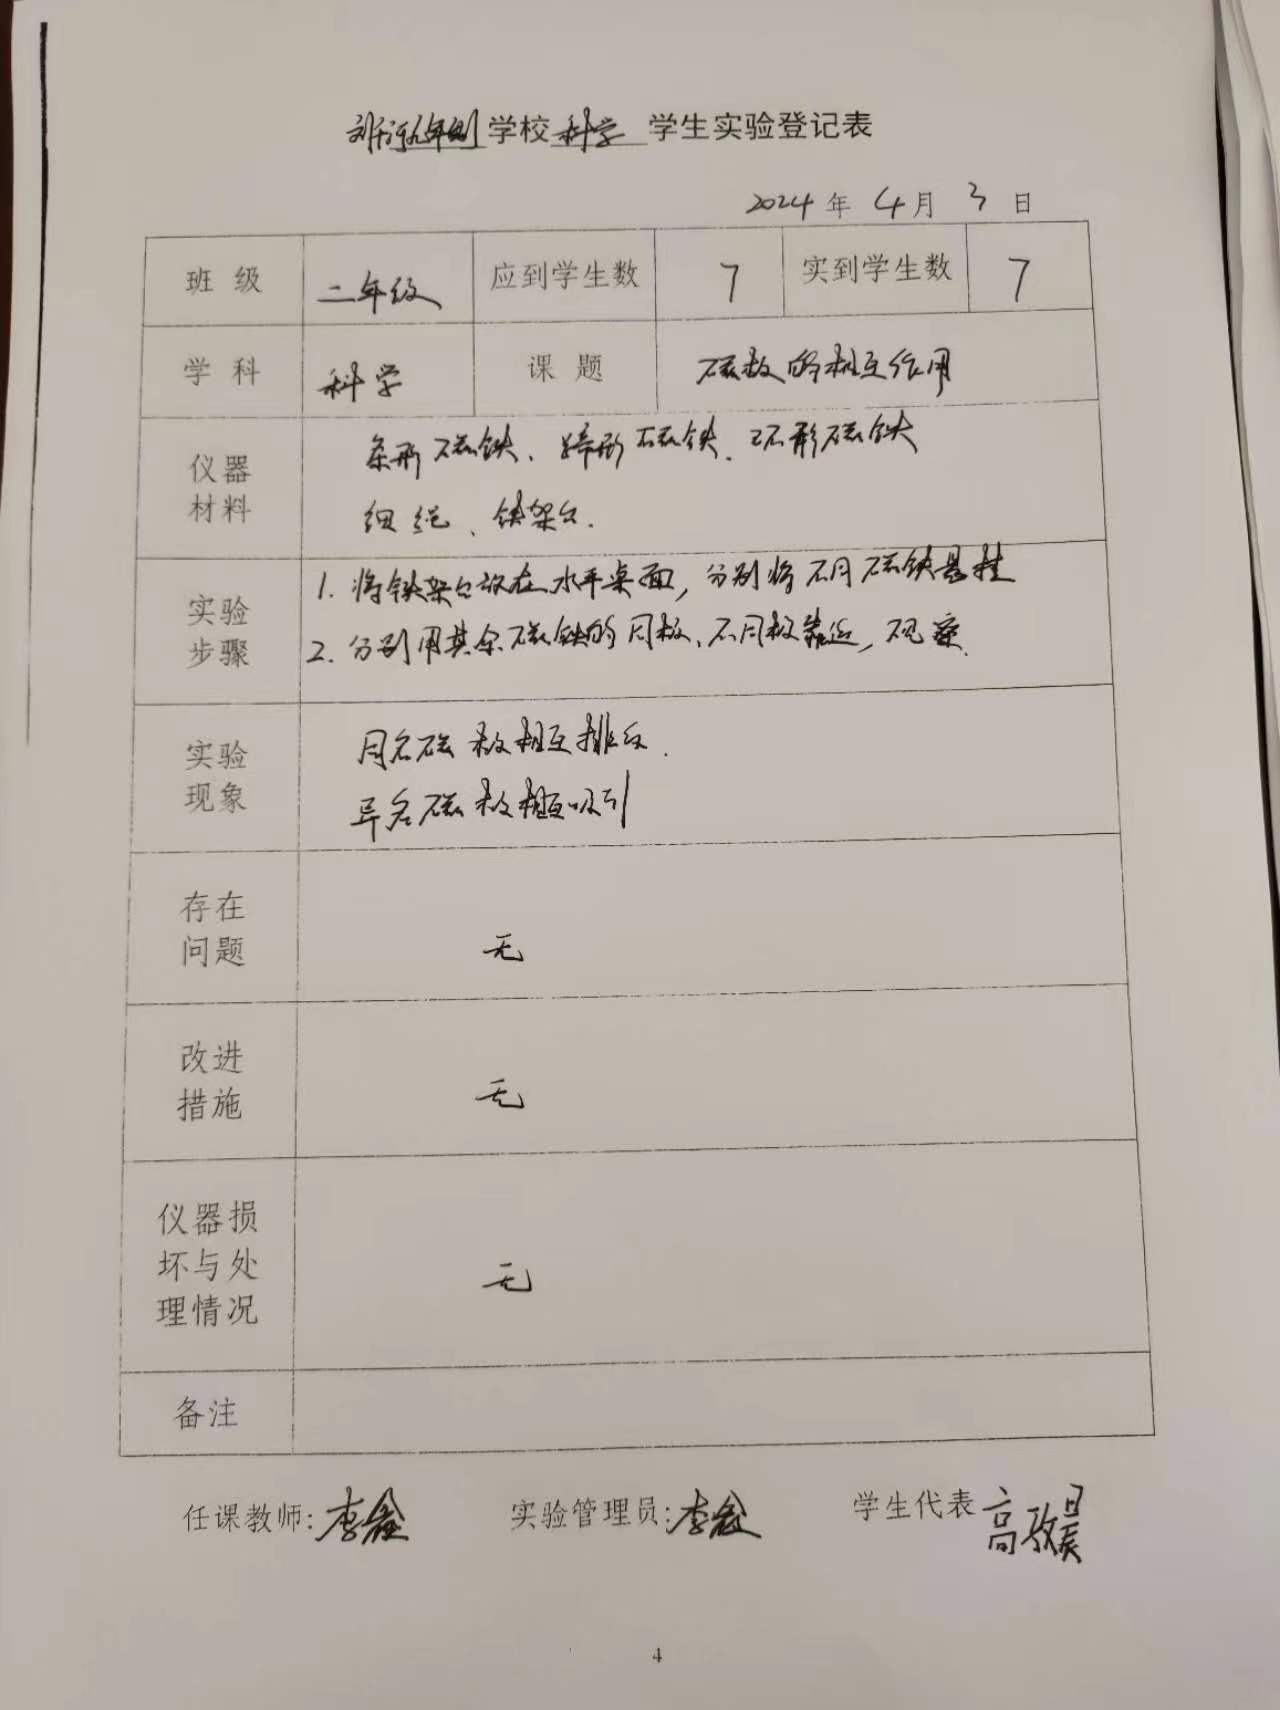 刘河九年制学校科学 学生实验登记表
2024年4月3日
班级 二年级 应到学生数 7 实到学生数 7
学科 科学 课题 磁极的相互作用
仪器材料
条形磁铁、蹄形磁铁、环形磁铁
细绳、铁架台.
实验步骤
1. 将铁架台放在水平桌面,分别将不同磁铁悬挂
2. 分别用其余磁铁的同极、不同极靠近,观察.
实验现象
同名磁极相互排斥.
异名磁极相互吸引
存在问题
无
改进措施
无
仪器损坏与处理情况
无
备注
任课教师:李鑫 实验管理员:李鑫 学生代表 高
4